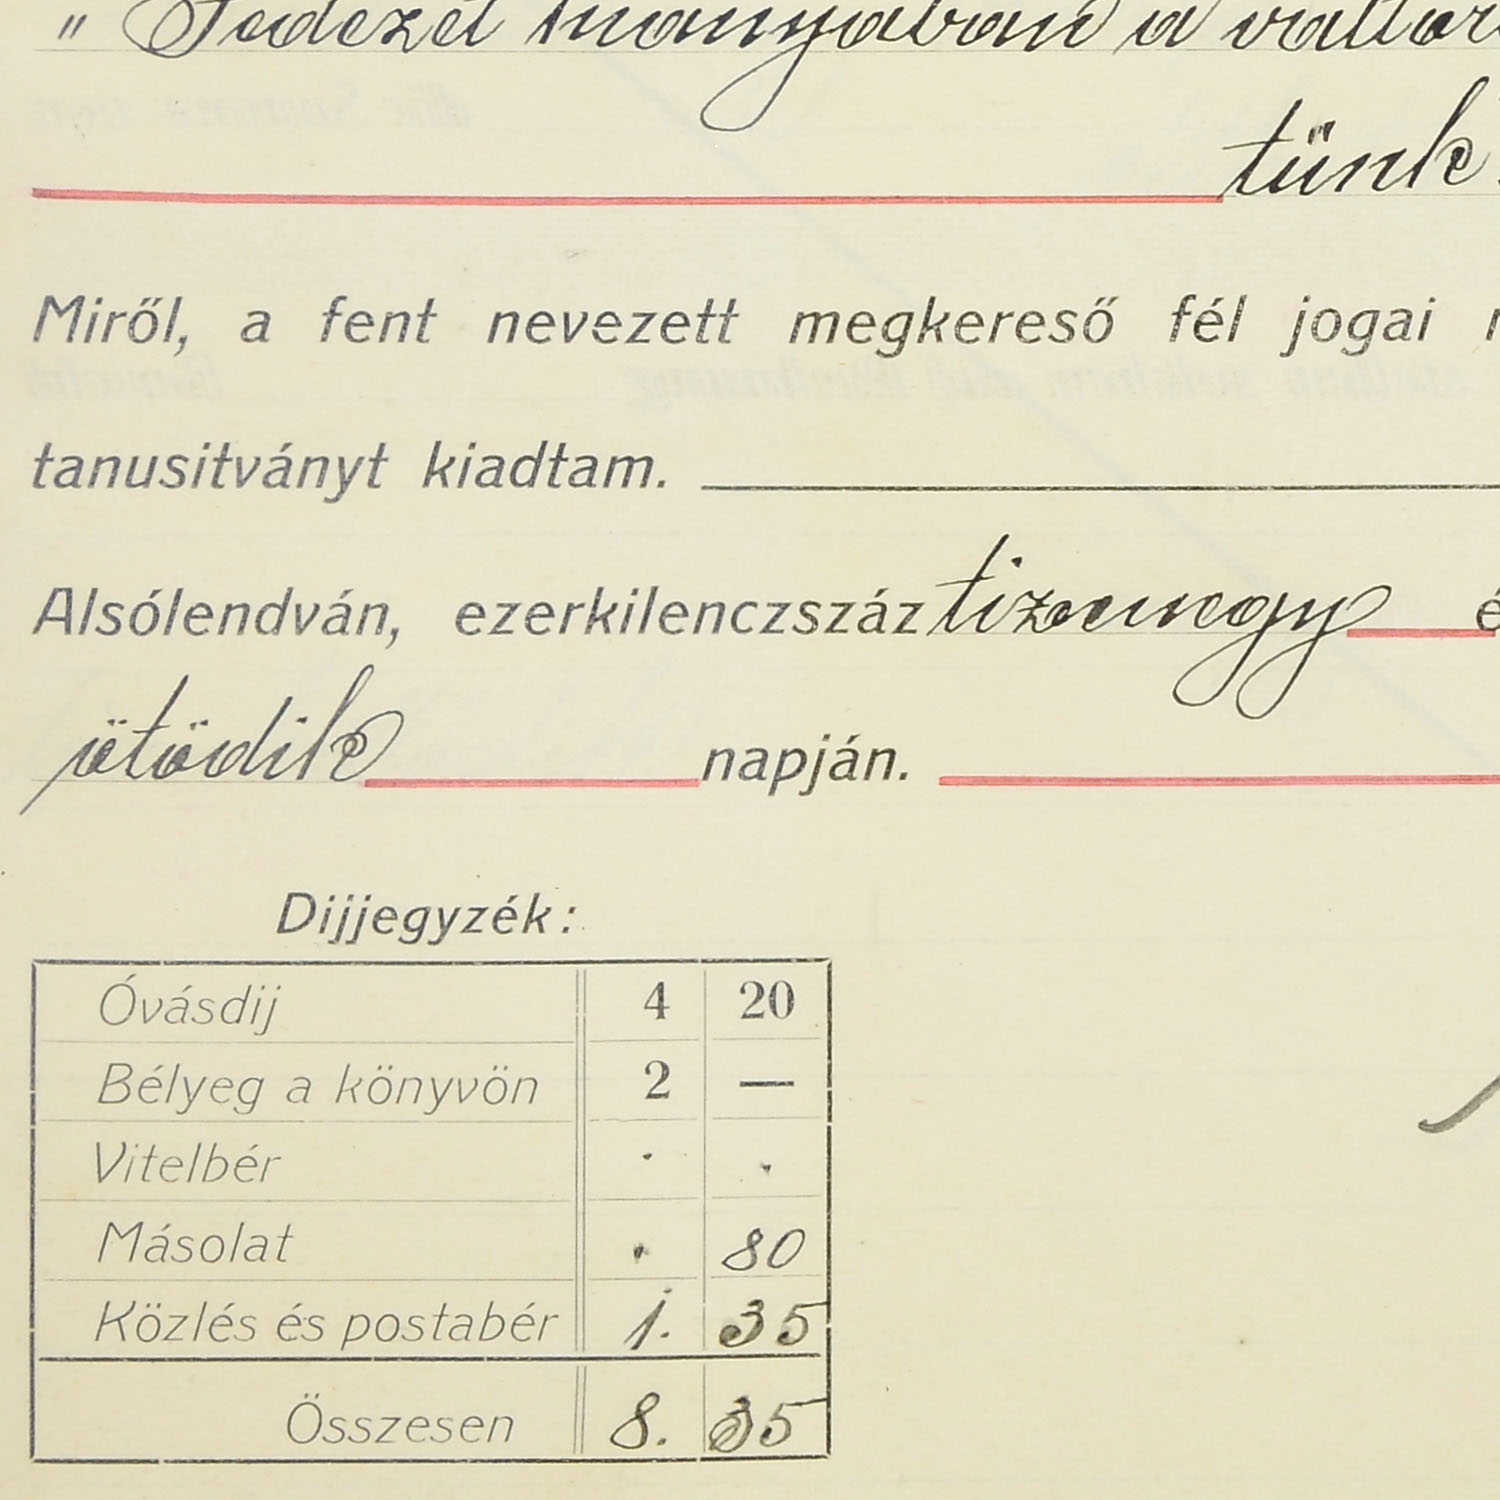 " Fedezet hianyában a váltót
tünk.
Miről, a fent nevezett megkereső fél jogai
tanusitványt kiadtam.
Alsólendván, ezerkilenczszáz tizenegy é
ötödik napján.
Dijjegyzék:
Óvásdij 4 20
Bélyeg a könyvön 2 —
Vitelbér . .
Másolat . 80
Közlés és postabér 1. 35
Összesen 8. 35